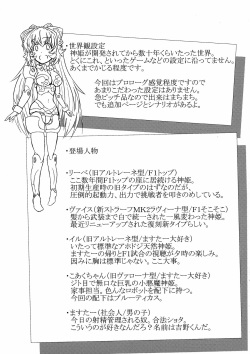 ・世界観設定
神姫が開発されてから数十年くらいたった世界。
とくにこれ、といったゲームなどの設定に沿ってません。
あくまでかじる程度です。
今回はプロローグ感覚程度ですので
あまりこだわった設定はありません。
急ピッチ品なので出来はまちまち。
でも追加ページとシナリオがあるよ。
・登場人物
・リーベ(旧アルトレーネ型/F1トップ)
ここ数年間F1トップの座に居続ける神姫。
初期生産時の(旧)タイプのはずなのだが、
圧倒的起動力、出力で挑戦者を叩きのめしている。
・ヴァイス(新ストラーフMK2ラヴィーナ型/F1そこそこ)
髪から武装まで白で統一された一風変わった神姫。
最近リニューアップされた復刻新タイプらしい。
・イル(旧アルトレーネ型/ますたー大好き)
いたって標準なアホジデ天然神姫。
ますたーの帰りとF1試合の視聴が夕時の楽しみ。
因みに胸は標準じゃない。ここ大事。
・こあくちゃん(旧ヴァローナ型/ますたー大好き)
ジト目で無口な巨乳の小悪魔神姫。
家事担当。色んなロボットを配下に持つ。
今回の配下はブルーティカス。
・ますたー(社会人/男の子)
今日の射精管理される奴。合法ショタ。
こういうのが好きなんだろ?名前は吉野くんだ。